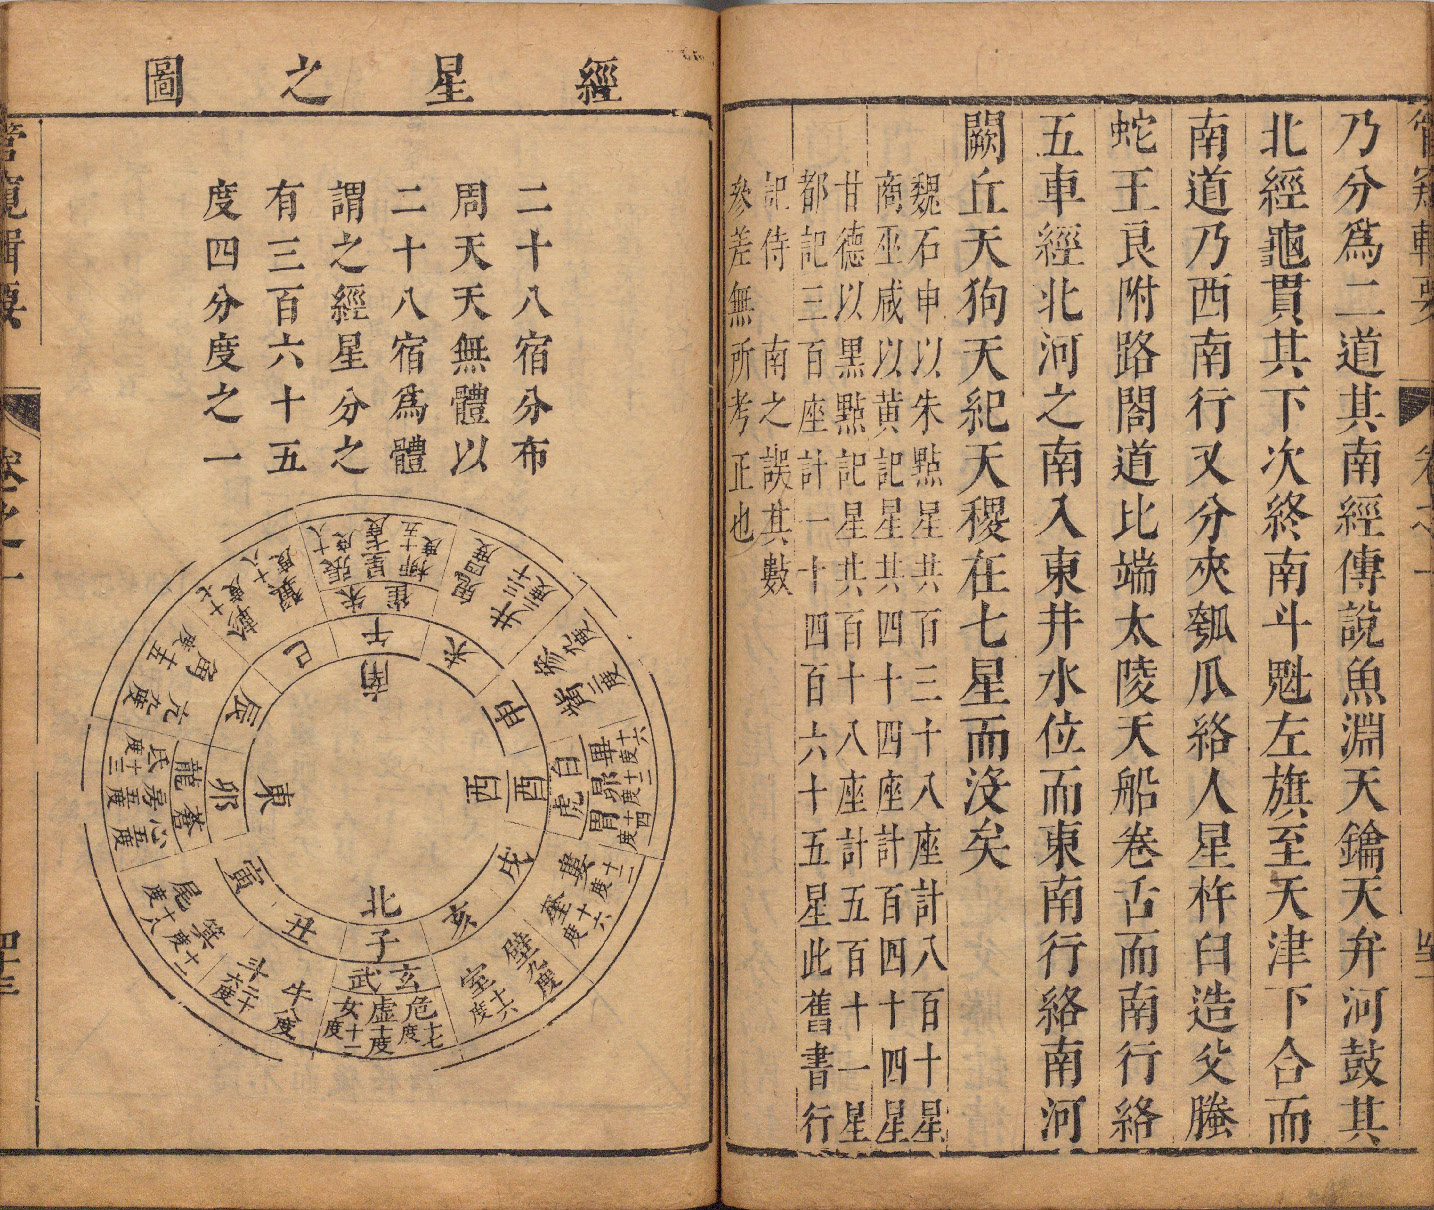 乃分爲二道其南經傳説魚淵天鑰天弁河鼓其
北經龜貫其下次終南斗魁左旗至天津下合而
南道乃西南行又分夾瓠瓜絡人星杵臼造父騰
蛇王良附路閣道比端太陵天船卷舌而南行絡
五車經北河之南入東井水位而東南行絡南河
闕丘天狗天紀天稷在七星而沒矣
魏石申以朱點星共百三十八座計八百十星
商巫咸以黄記星共四十四座計百四十四星
甘德以黑點記星共百十八座計五百十一星
都記三百座計一十四百六十五星此舊書行
記侍　南之誤其數
參差無所考正也
經星之圖
二十八宿分布
周天天無體以
二十八宿爲體
謂之經星分之
有三百六十五
度四分度之一
南
午
朱雀
柳十五度
星七度
張十八度
未
鬼四度
井三十三度
申
參度
觜二度
西
酉
白虎
畢十六度
昴十二度
胃十四度
戌
婁十二度
奎十六度
亥
壁九度
室十六度
北
子
玄武
危十七度
虛十度
女十二度
丑
牛八度
斗二十六度
寅
箕十二度
尾十八度
東
卯
蒼龍
心五度
房五度
氐十三度
辰
亢九度
角十五度
巳
軫十七度
翼十六度
管窺輯要
卷之一